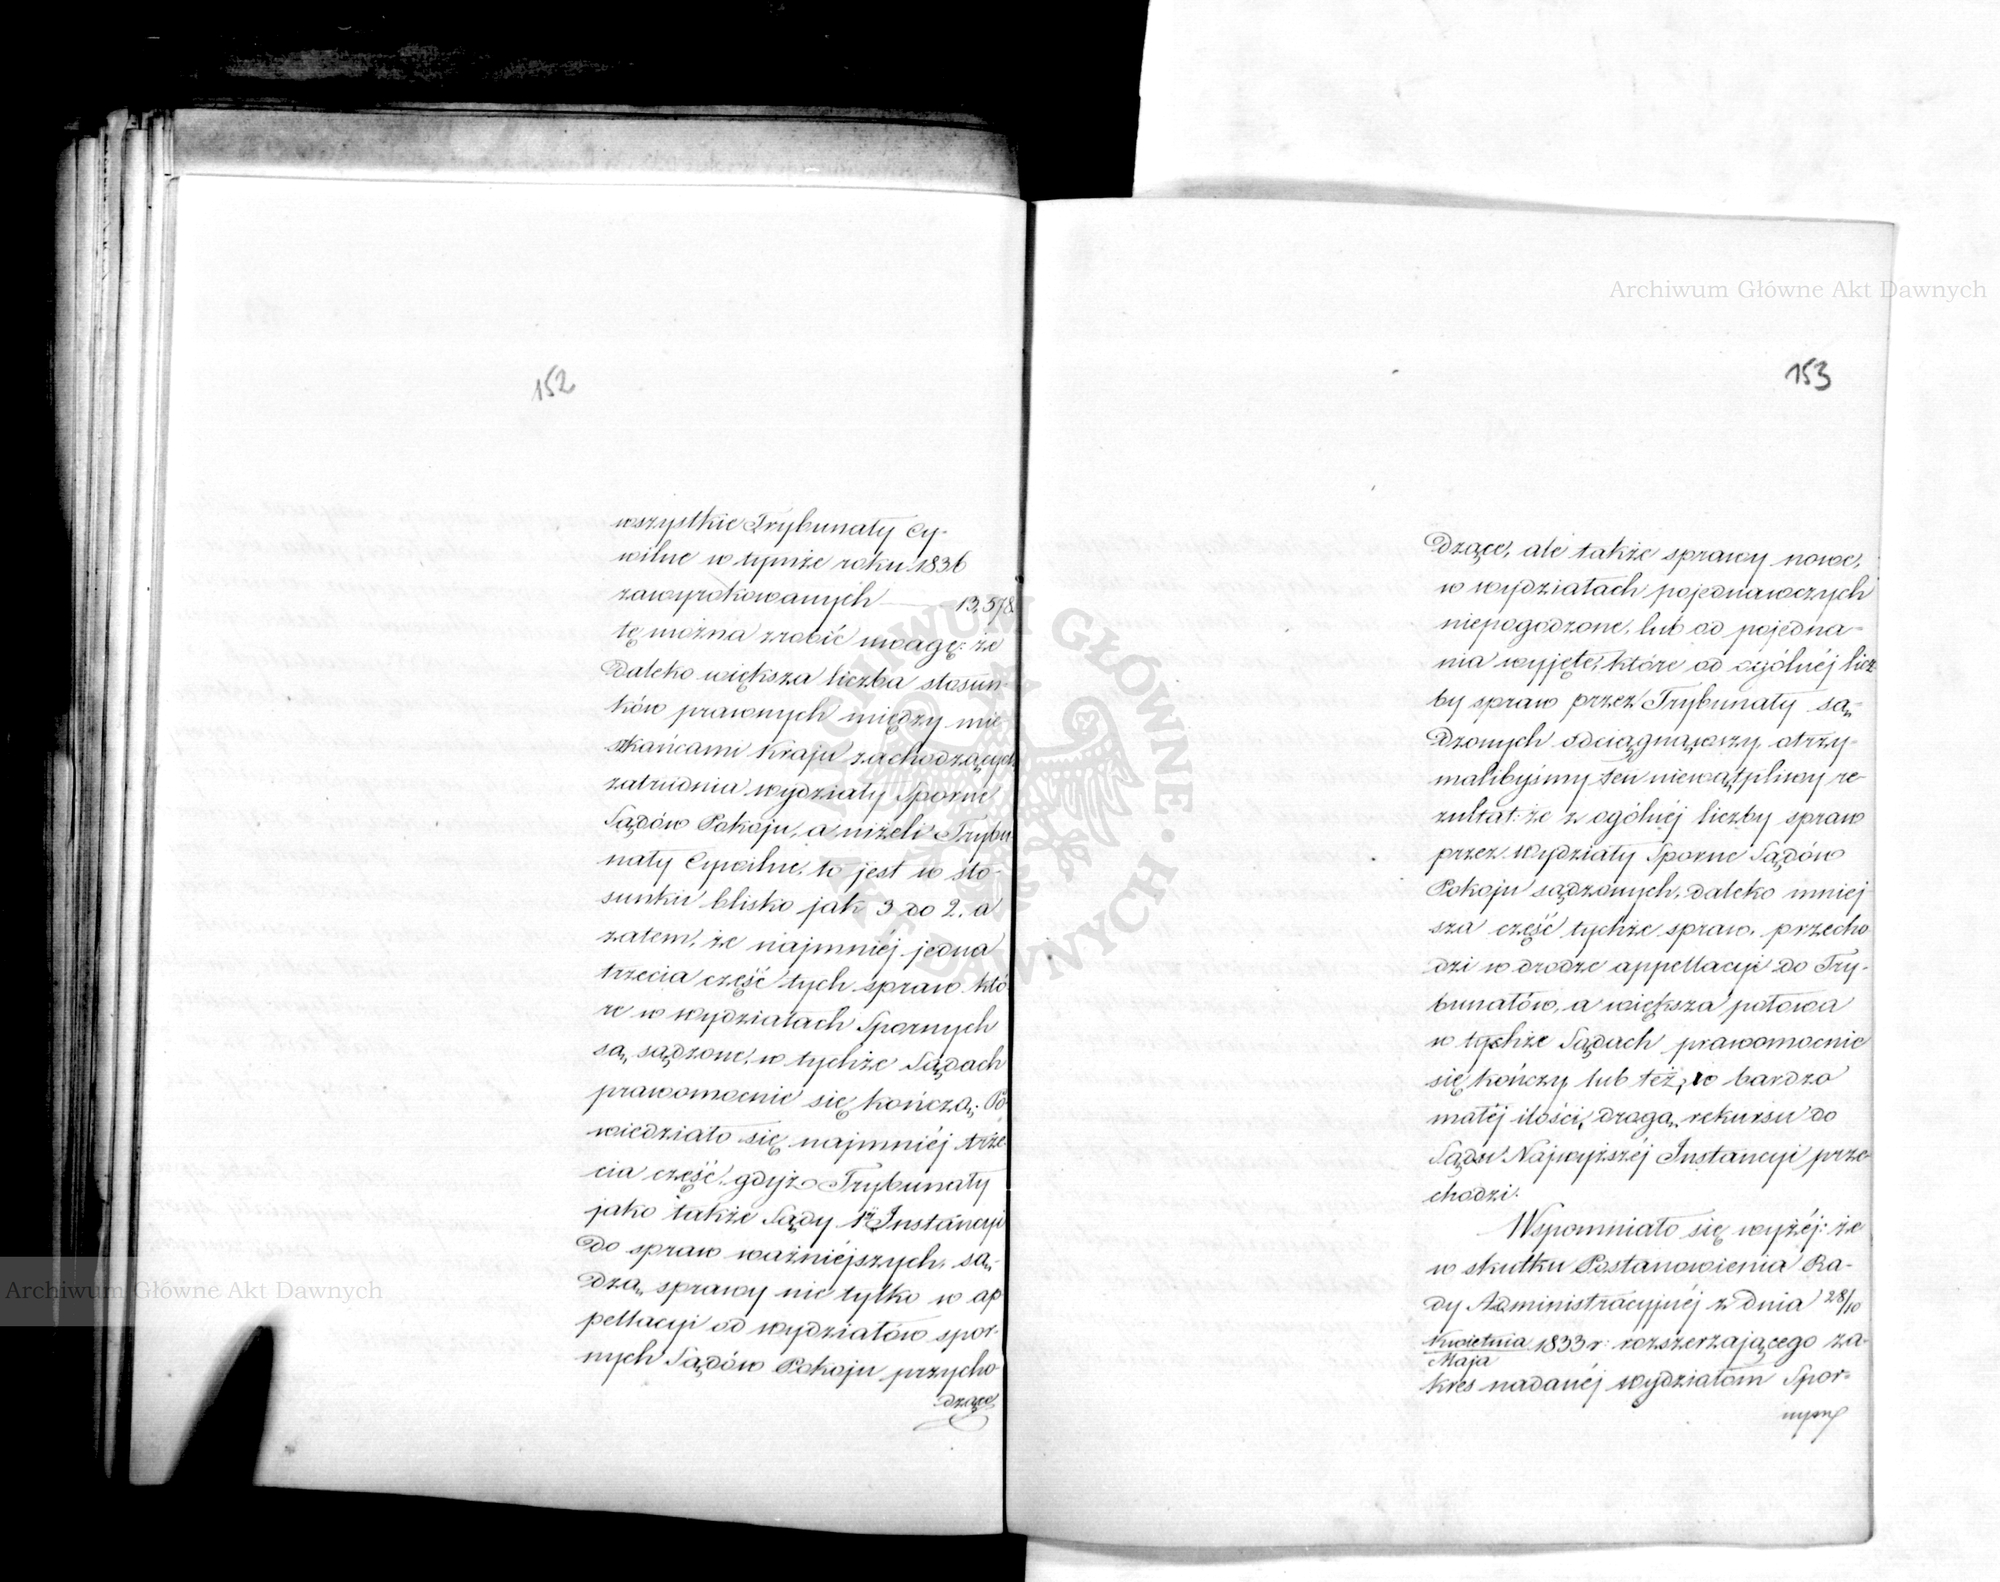 152
wszystkie Trybunały Cy-
wilne w tymże roku 1836
zawyrokowanych —— 13,578
tę można zrobić uwagę: że
daleko większa liczba stosun-
ków prawnych między mie
szkańcami Kraju zachodzących
zatrudnia wydziały Sporne
Sądów Pokoju, a niżeli Trybu
nały Cywilne, to jest w sto-
sunku blisko jak 3 do 2, a
zatem, że najmniéj jedna
trzecia część tych spraw któ
re w wydziałach Spornych
są sądzone, w tychże Sądach
prawomocnie się kończą; Po
wiedziało się najmniéj trze
cia część, gdyż Trybunały
jako także Sądy 1éj Instancyi
do spraw ważniejszych, są-
dzą sprawy nie tylko w ap
pellacyi od wydziałów spor-
nych Sądów Pokoju przycho
dzące
153
dzące, ale także sprawy nowe,
w wydziałach pojednawczych
niepogodzone, lub od pojedna-
nia wyjęte, które od ogólnéj licz
by spraw przez Trybunały są-
dzonych odciągnąwszy, otrzy-
malibyśmy ten niewątpliwy re-
zultat: że z ogólnéj liczby spraw
przez wydziały Sporne Sądów
Pokoju sądzonych, daleko mniej
sza część tychże spraw, przecho
dzi w drodze appellacyi do Try-
bunałów, a większa połowa
w tychże Sądach prawomocnie
się kończy lub też, w bardzo
małéj ilości, drogą rekursu do
Sądu Najwyższéj Instancyi prze-
chodzi.
Wspomniało się wyżéj: że
w skutku Postanowienia Ra-
dy Administracyjnéj z dnia 28/10
Kwietnia 1833 r: rozszerzającego za-
Maja
kres nadanéj wydziałom Spor-
nym
Archiwum Główne Akt Dawnych
Archiwum Główne Akt Dawnych
ARCHIWUM GŁÓWNE AKT DAWNYCH